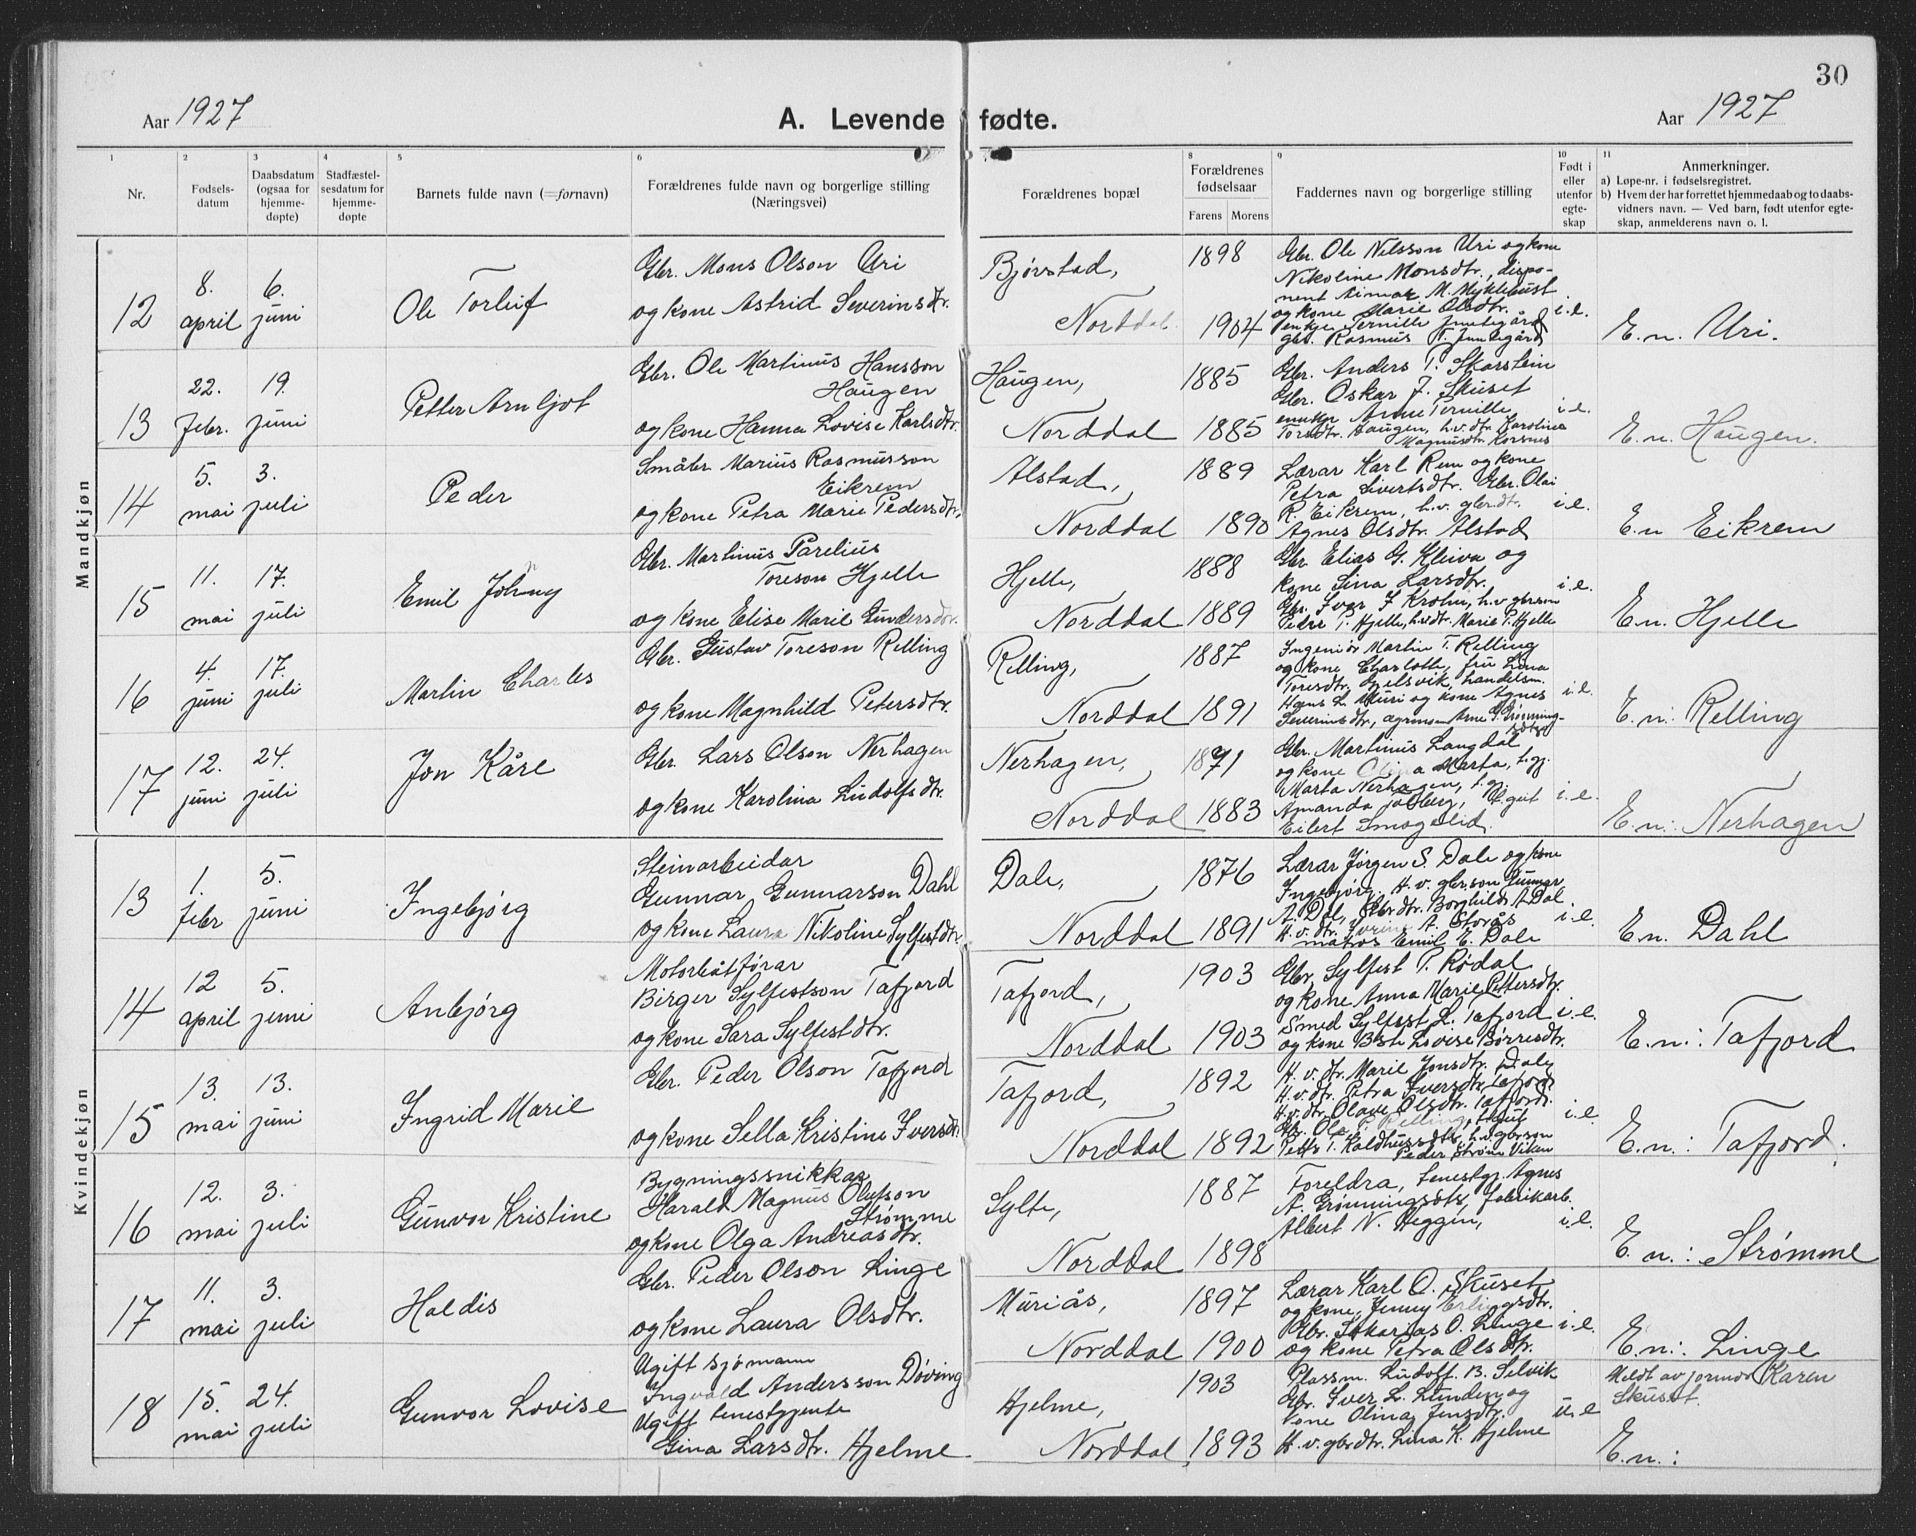 30
Aar 1927
A. Levende fødte.
Aar 1927
1 2 3 4 5 6 8 9 10 11
Nr.
Fødsels-
datum
Daabsdatum
(ogsaa for
hjemme-
døpte)
Stadfæstel-
sesdatum for
hjemme-
døpte
Barnets fulde navn (=fornavn)
Forældrenes fulde navn og borgerlige stilling
(Næringsvei)
Forældrenes bopæl
Forældrenes
fødselsaar
Farens Morens
Faddernes navn og borgerlige stilling
Født i
eller
utenfor
egte-
skap
Anmerkninger.
a) Løpe-nr. i fødselsregistret.
b) Hvem der har forrettet hjemmedaab og to daabs-
vidners navn. — Ved barn, født utenfor egte-
skap, anmelderens navn o. l.
Mandkjøn
12
8. april
6. juni
Ole Torleif
Gbr. Mons Olson Uri
og kone Astrid Severinsdtr.
Bjørstad,
Norddal
1898
1904
Gbr. Ole Nilsson Uri og kone
Nikoline Monsdtr., dispo-
nent Aimar M. Myklebust
og kone Marie Olsdtr.
Pernille
gbr. Rasmus
i.e.
E.n. Uri.
13
22. febr.
19. juni
Petter Arnljot
Gbr. Ole Martinus Hansson
Haugen
og kone Hanna Lovise Karlsdtr.
Haugen,
Norddal
1885
1885
Gbr. Anders T. Skarstein
Gbr. Oskar J. Skuset
Anne Pernille
Haugen, h.v.dtr. Karoline
Magnusdtr. Korsnes
i.e.
E.n. Haugen.
14
5. mai
3. juli
Peder
Småbr Marius Rasmusson
Eikrem
og kone Petra Marie Pedersdtr.
Alstad,
Norddal
1889
1890
Lærar Karl Rem og kone
Petra Sivertsdtr. Gbr. Olai
R. Eikrem, h.v. gbr.dt.
Agnes Olsdtr. Alstad
i.e.
E.n Eikrem
15
11. mai
17. juli
Emil Johny
Gbr. Martinus Parelius
Toreson Hjelle
og kone Elise Marie Gundersdtr.
Hjelle,
Norddal
1888
1889
Gbr Elias G. Kleiva og
kone Sina Larsdtr.
Gbr. Iver J Krohn, h.v gbrson
Peder T. Hjelle, h.v.dt. Marie P. Hjelle
i.e.
E.n. Hjelle
16
4. juni
17. juli
Martin Charles
Gbr. Gustav Toreson Relling
og kone Magnhild Petersdtr.
Relling,
Norddal
1887
1891
Ingeniør Martin T. Relling
og kone Charlotte, fru Lina
Toresdtr. handelsm.
Hans L. Muri og kone Agnes
Severinsdtr.,
i.e.
E.n. Relling
17
12. juni
24. juli
Jon Kåre
Gbr Lars Olson Nerhagen
og kone Karolina Ludolfsdtr.
Nerhagen,
Norddal
1871
1883
Gbr. Martinus Langdal
og kone Olina Marta, t.gj.
Marta Nerhagen, t.gj
Amanda Solberg, E.gut
Eilert Smogelid.
i.e.
E.n: Nerhagen
Kvindekjøn
13
1. febr
5. juni
Ingebjørg
Steinarbeidar
Gunnar Gunnarson Dahl
og kone Laura Nikoline Sylfestdtr.
Dale,
Norddal
1876
1891
Lærar Jørgen S. Dale og kone
Ingebjørg. H.v. gbr.son Gunnar
A. Dal, Gbrdtr. Borghild A Dal.
H.v. dtr. A. Storås
matros Emil E. Dale
i.e.
E.n. Dahl
14
12 april
5. juni
Anbjørg
Motorbåtførar
Birger Sylfestson Tafjord
og kone Sara Sylfestdtr.
Tafjord,
Norddal
1903
1903
Gbr, Sylfest P. Rødal
og kone Anna Marie Pettersdtr.
Smed Sylfest L. Tafjord
og kone Lovise Børresdtr.
i.e.
E.n.: Tafjord
15
13. mai
13. juni
Ingrid Marie
Gbr. Peder Olson Tafjord
og kone Sella Kristine Iversdtr.
Tafjord,
Norddal
1892
1892
H.v. dtr. Marie Jonsdtr. Dale
H.v. dtr. Petra Iversdtr. Tafjord
H.v. dtr. Olave Olsdtr. Tafjord.
Gbr. Ole Relling,
Kaldhussdtr., h.v.gbrson
Peder Strøm Viken
i.e.
E.n.: Tafjord.
16
12. mai
3. juli
Gunvor Kristine
Bygningssnikkar
Harald Magnus Olufson
Strømme
og kone Olga Andreasdtr.
Sylte,
Norddal
1887
1898
Foreldra, tenestgj. Agnes
A. Grønningsdtr. fabrikarb.
Albert N. Heggen,
i.e.
E.n.: Strømme
17
11. mai
3. juli
Haldis
Gbr. Peder Olson Linge
og kone Laura Olsdtr.
Muriås,
Norddal
1897
1900
Lærar Karl O. Skuset
og kone Jenny Erlingsdtr.
Gbr. Sakarias O. Linge
og kone Petra Olsdtr.
i.e.
E.n: Linge
18
15. mai
24. juli
Gunvor Lovise
Ugift sjømann
Ingvald Andersson Døving
Ugift tenestgjente
Gina Larsdtr. Hjelme
Hjelme,
Norddal
1903
1893
Plassm. Ludolf B. Selvik
Gbr. Iver L. Lunden og
kone Olina Jensdtr.
H.v. gbrdtr. Lina K. Hjelme
u.e
Meldt av jormor Karen
Skuset.
E.n.: